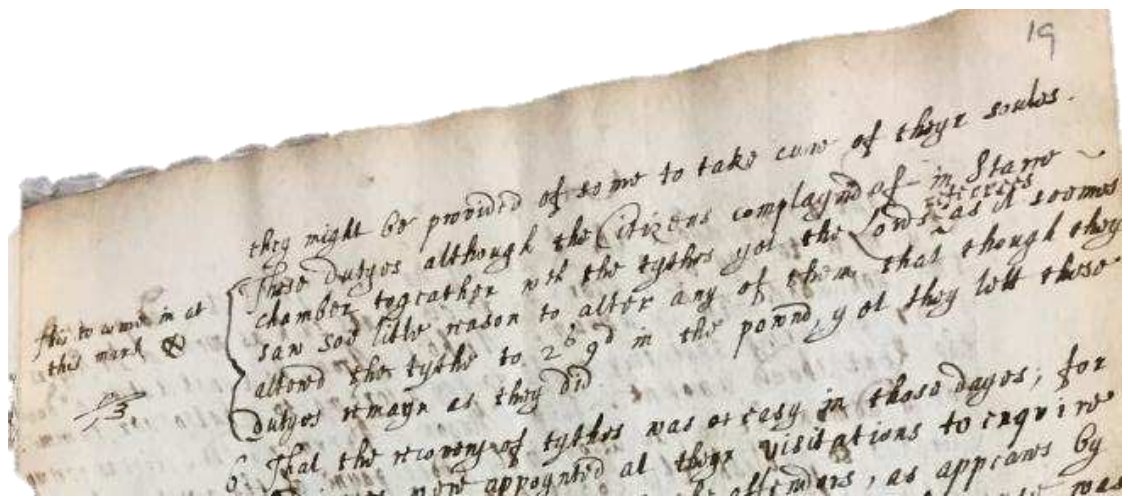 19
they might be provided of some to take cure of theyr soules.
These dutyes although the Citizens complaynd of in Starre
chamber togeather wth the tythes yet the Lords decrees as it seemes
saw soe litle reason to alter any of them, that though they
altered the tythe to 2s 9d in the pownd, yet they left these
dutyes remayn as they did
this to come in at
this mark ⊗
6 That the recovery of tythes was easy in those dayes, for
were appoynted at theyr visitations to enquire
offendors, as appeares by
was